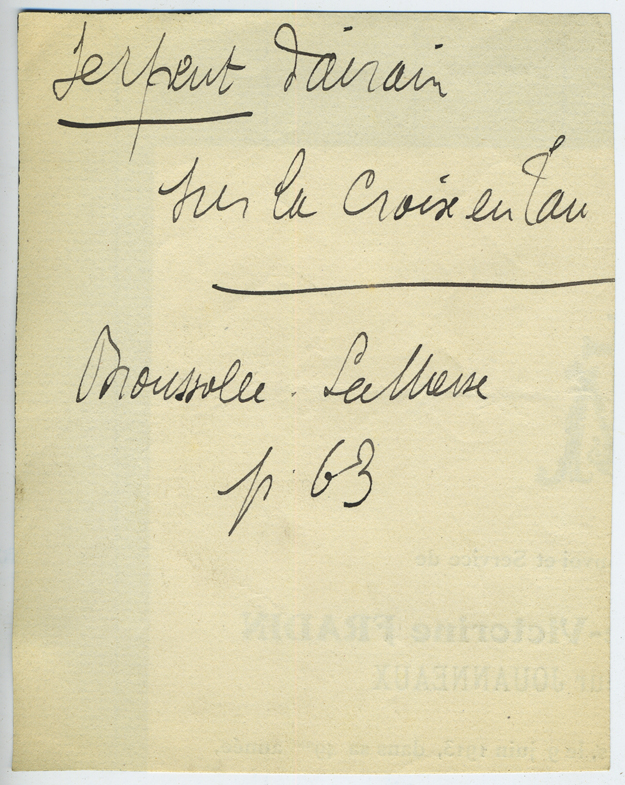 Serpent d'airain
sur la Croix en Tau
Broussolle. La Messe
p. 63